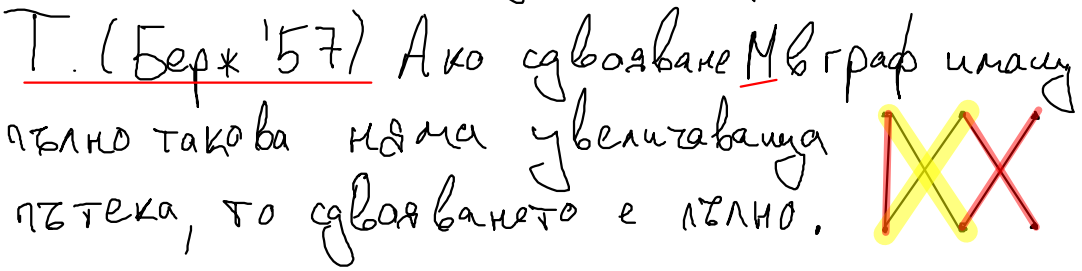 Т. (Берж '57) Ако сдвояване М в граф имащ
пълно такова няма увеличаваща
пътека, то сдвояването е пълно.